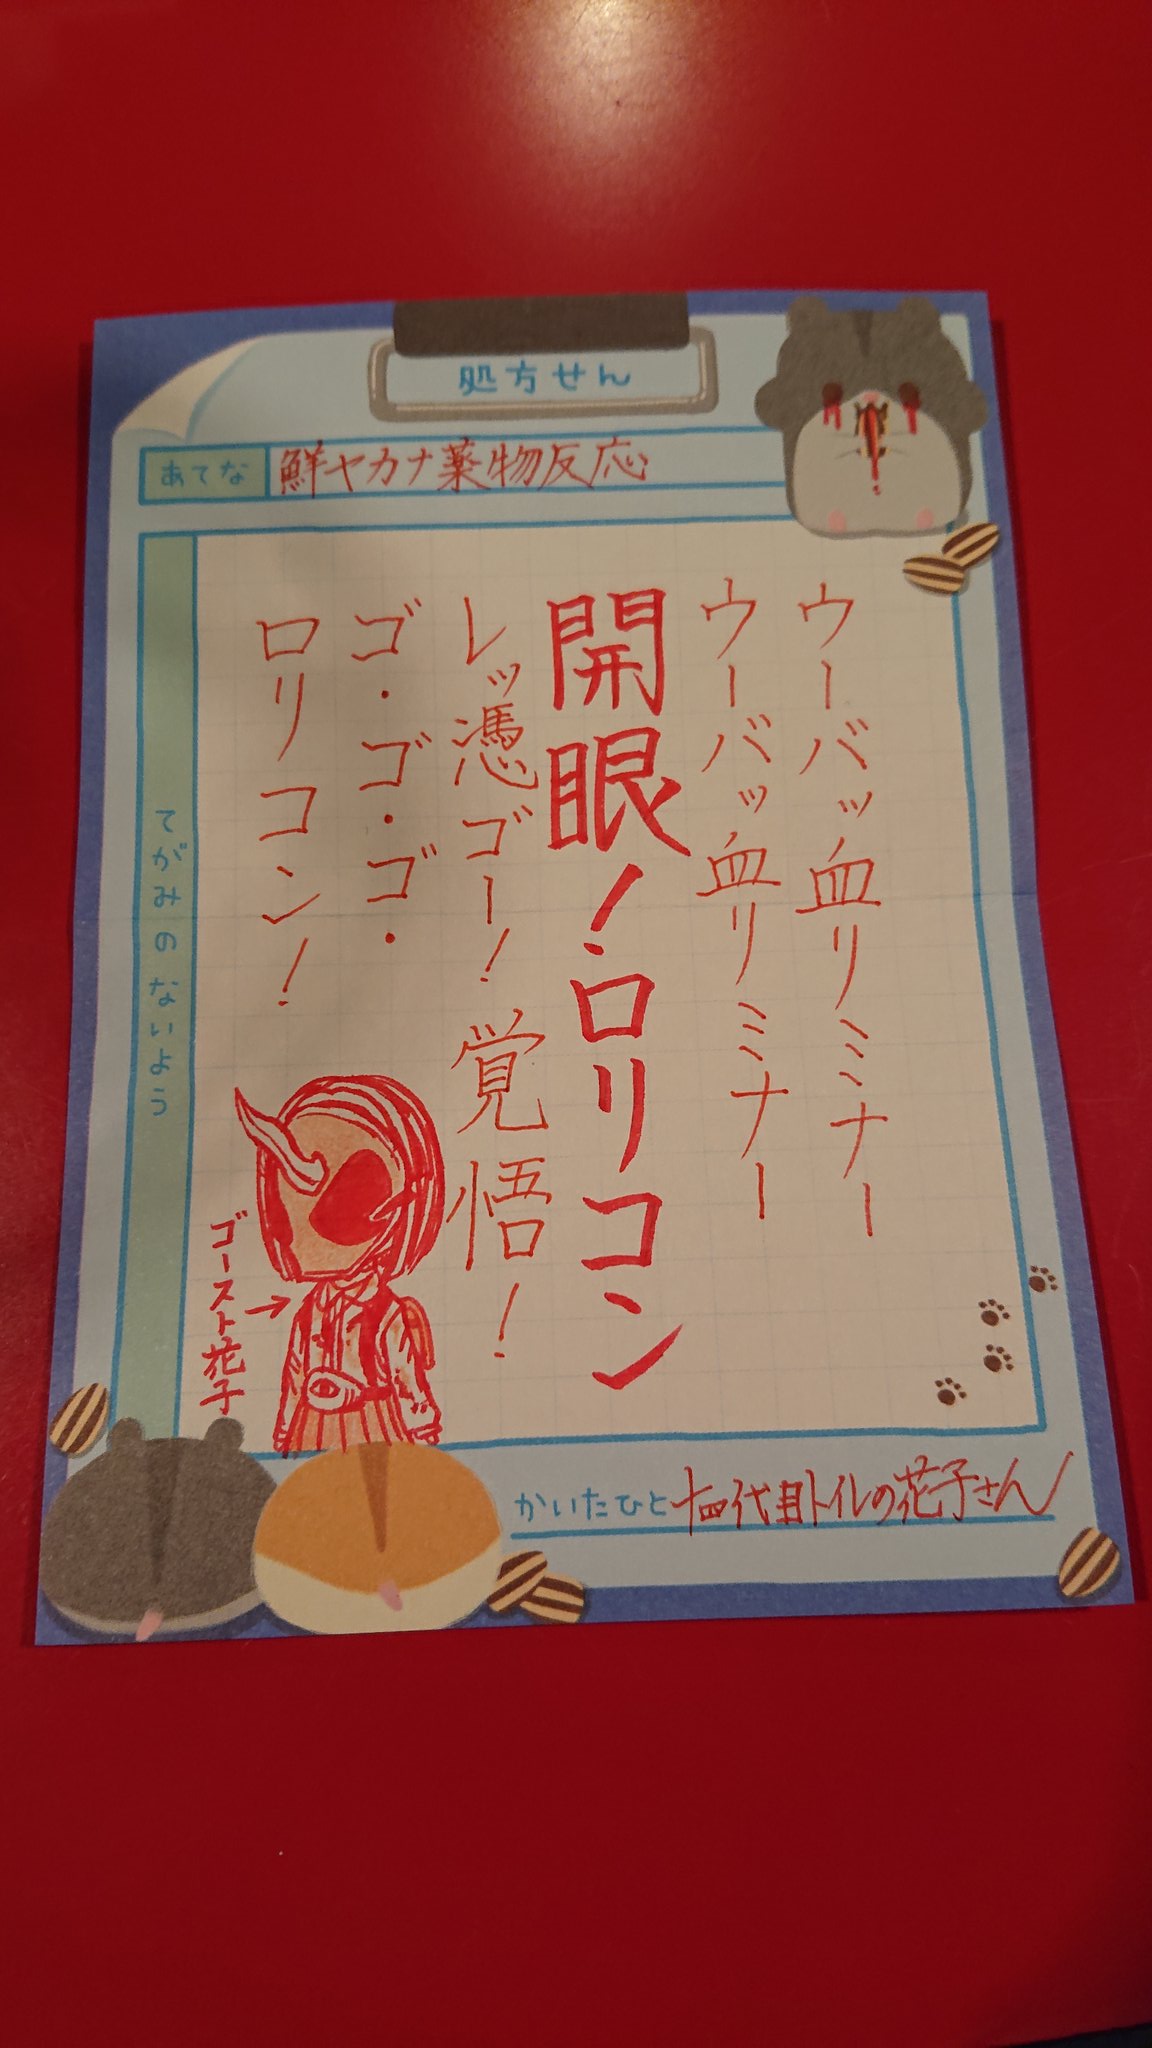 処方せん
あてな 鮮ヤカナ薬物反応
てがみのないよう
ウーバッ血リミナー
ウーバッ血リミナー
開眼!ロリコン
レッ憑ゴー!覚悟!
ゴ・ゴ・ゴ・
ロリコン!
ゴースト花子→
かいたひと 十四代目トイレの花子さん